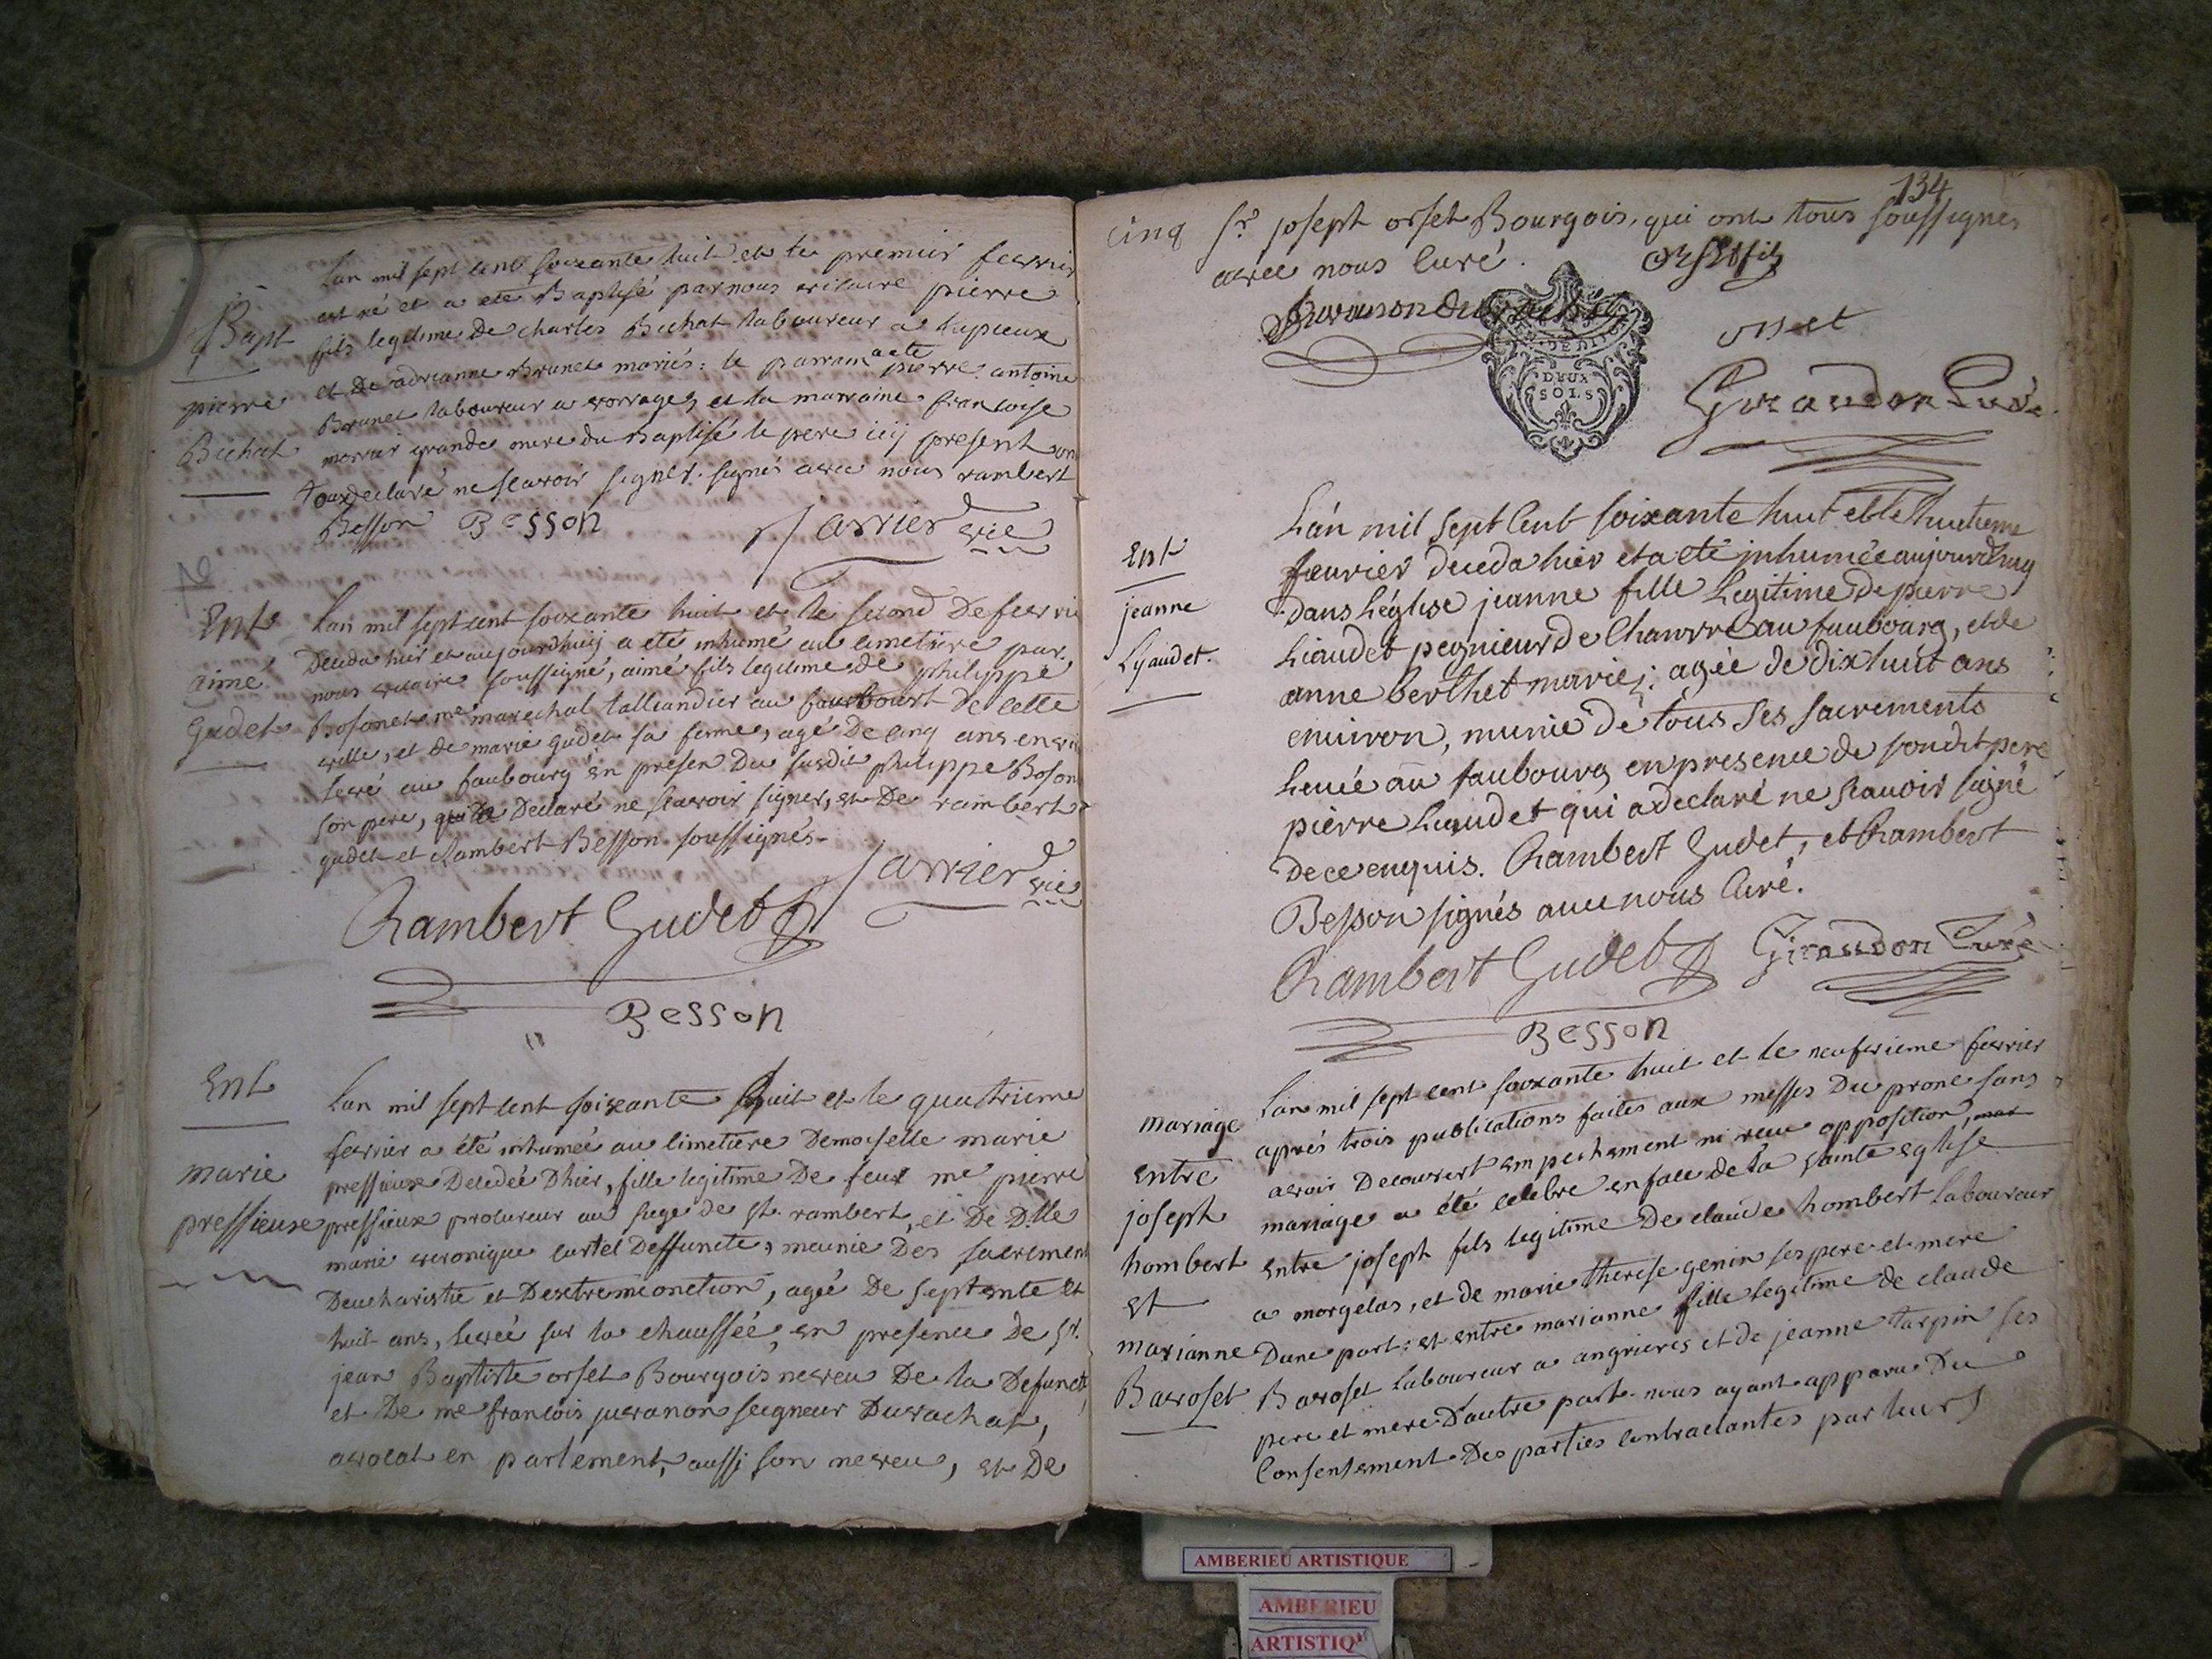 Bapt
pierre
Bichat
Lan mil sept cent soixante huit et le premier fevrier
est né et a eté Baptisé par nous vicaire pierre
fils legitime De charles Bichat laboureur a lupieux
et De adrianne Brunet mariés: le parrain a eté pierre antoine
Brunet laboureur a vorrages et la marraine francoise
grande mere du Baptisé le pere icy present ont
tous declaré ne scavoir signer. signés avec nous rambert
Besson Besson Jarrier vic
Ent
aimé
Gudet
Lan mil sept cent soixante huit et le second De fevrie
Deceda hier et aujourdhuij a eté inhumé au cimetiere par
nous vicaire soussigné, aimé fils legitime de philippe
Bosonet me marechal talliandier au faurbourt de cette
ville, et de marie gudet sa femme, agé De cinq ans envir
levé au faubourg en presen Du susdit philippe Boson
son pere, qui a Declaré ne scavoir signer, et De rambert
gudet et Rambert Besson soussignés
Jarrier vic
Rambert Gudet
Besson
Ent
marie
pressieuse
Lan mil sept cent soixante huit et le quatrieme
fevrier a été inhumée au cimetiere Demoiselle marie
pressieux Decedée Dhier, fille legitime De feux me pierre
pressieux procureur au siege de st. rambert, et De Dlle
marie veronique curtel Deffuncte, meunie Des sacrement
Deucharistie et Dextremeonction, agée De septente et
huit ans, levée sur la chaussée, en presence De sr.
jean Baptiste orset Bourgois neveu De la Defuncte,
et De me francois juvanon seigneur Duvachat,
avocat en parlement, aussi son neveu, et De
134
cinq sr. joseph orset Bourgois, qui ont tous soussignes
avec nous Curé.
orset fils
Juvanon du vachat
DEUX
SOLS
orset
Giraudon Curé.
Ent
jeanne
Lyaudet.
L'an mil sept Cent soixante huit et le huitieme
feuvrier déceda hier et a eté inhumée aujourd'huy
dans L'église jeanne fille Legitime de pierre
Liaudet pegnieur de Chanvre au faubourg, et de
anne berthet mariéz: agée de dix huit ans
environ, munie de tous ses sacrements
Levée au faubourg en presence de son dit pere
pierre Liaudet qui a declaré ne scavoir signé
de ce enquis. Rambert Gudet, et Rambert
Besson signés avec nous Curé.
Rambert Gudet Giraudon Curé
Besson
mariage
entre
joseph
hombert
et
marianne
Bavoset
Lan mil sept cent soixante huit et le neufvieme fevrier
aprés trois publications faites aux messes Du prone sans
avoir Decouvert empechement ni reçu opposition, mar
mariage a été celebre en face de la sainte eglise
entre joseph fils legitime De claude hombert laboureur
a morgelas, et de marie therese genin ses pere et mere
Dune part: et entre marianne fille legitime de claude
Bavoset laboureur a angrieres et de jeanne tarpin ses
pere et mere D'autre part. nous ayant apparu Du
Consentement Des parties contractantes par leurs
AMBERIEU ARTISTIQUE
AMBERIEU
ARTISTIQ